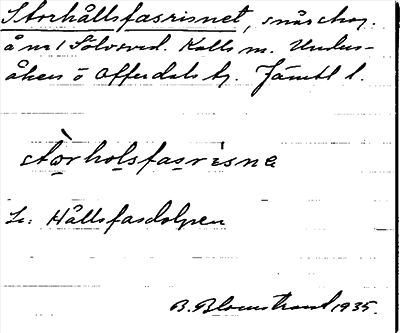 Storhållsfasrisnet, snåsskog.
å nr 1 Sölvsved. Kalls m. Unders-
åkers o Offerdals tg. Jämtl l.
stòrholsfasrìsne
Se: Hållsfasdalpen
B. Blomstrand 1935.